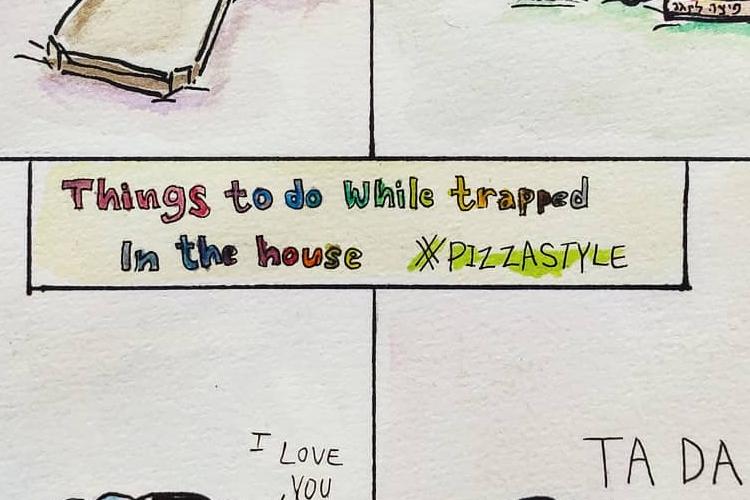 פיצה לנגב
Things to do While trapped
In the house #PIZZASTYLE
I LOVE
YOU
TA DA